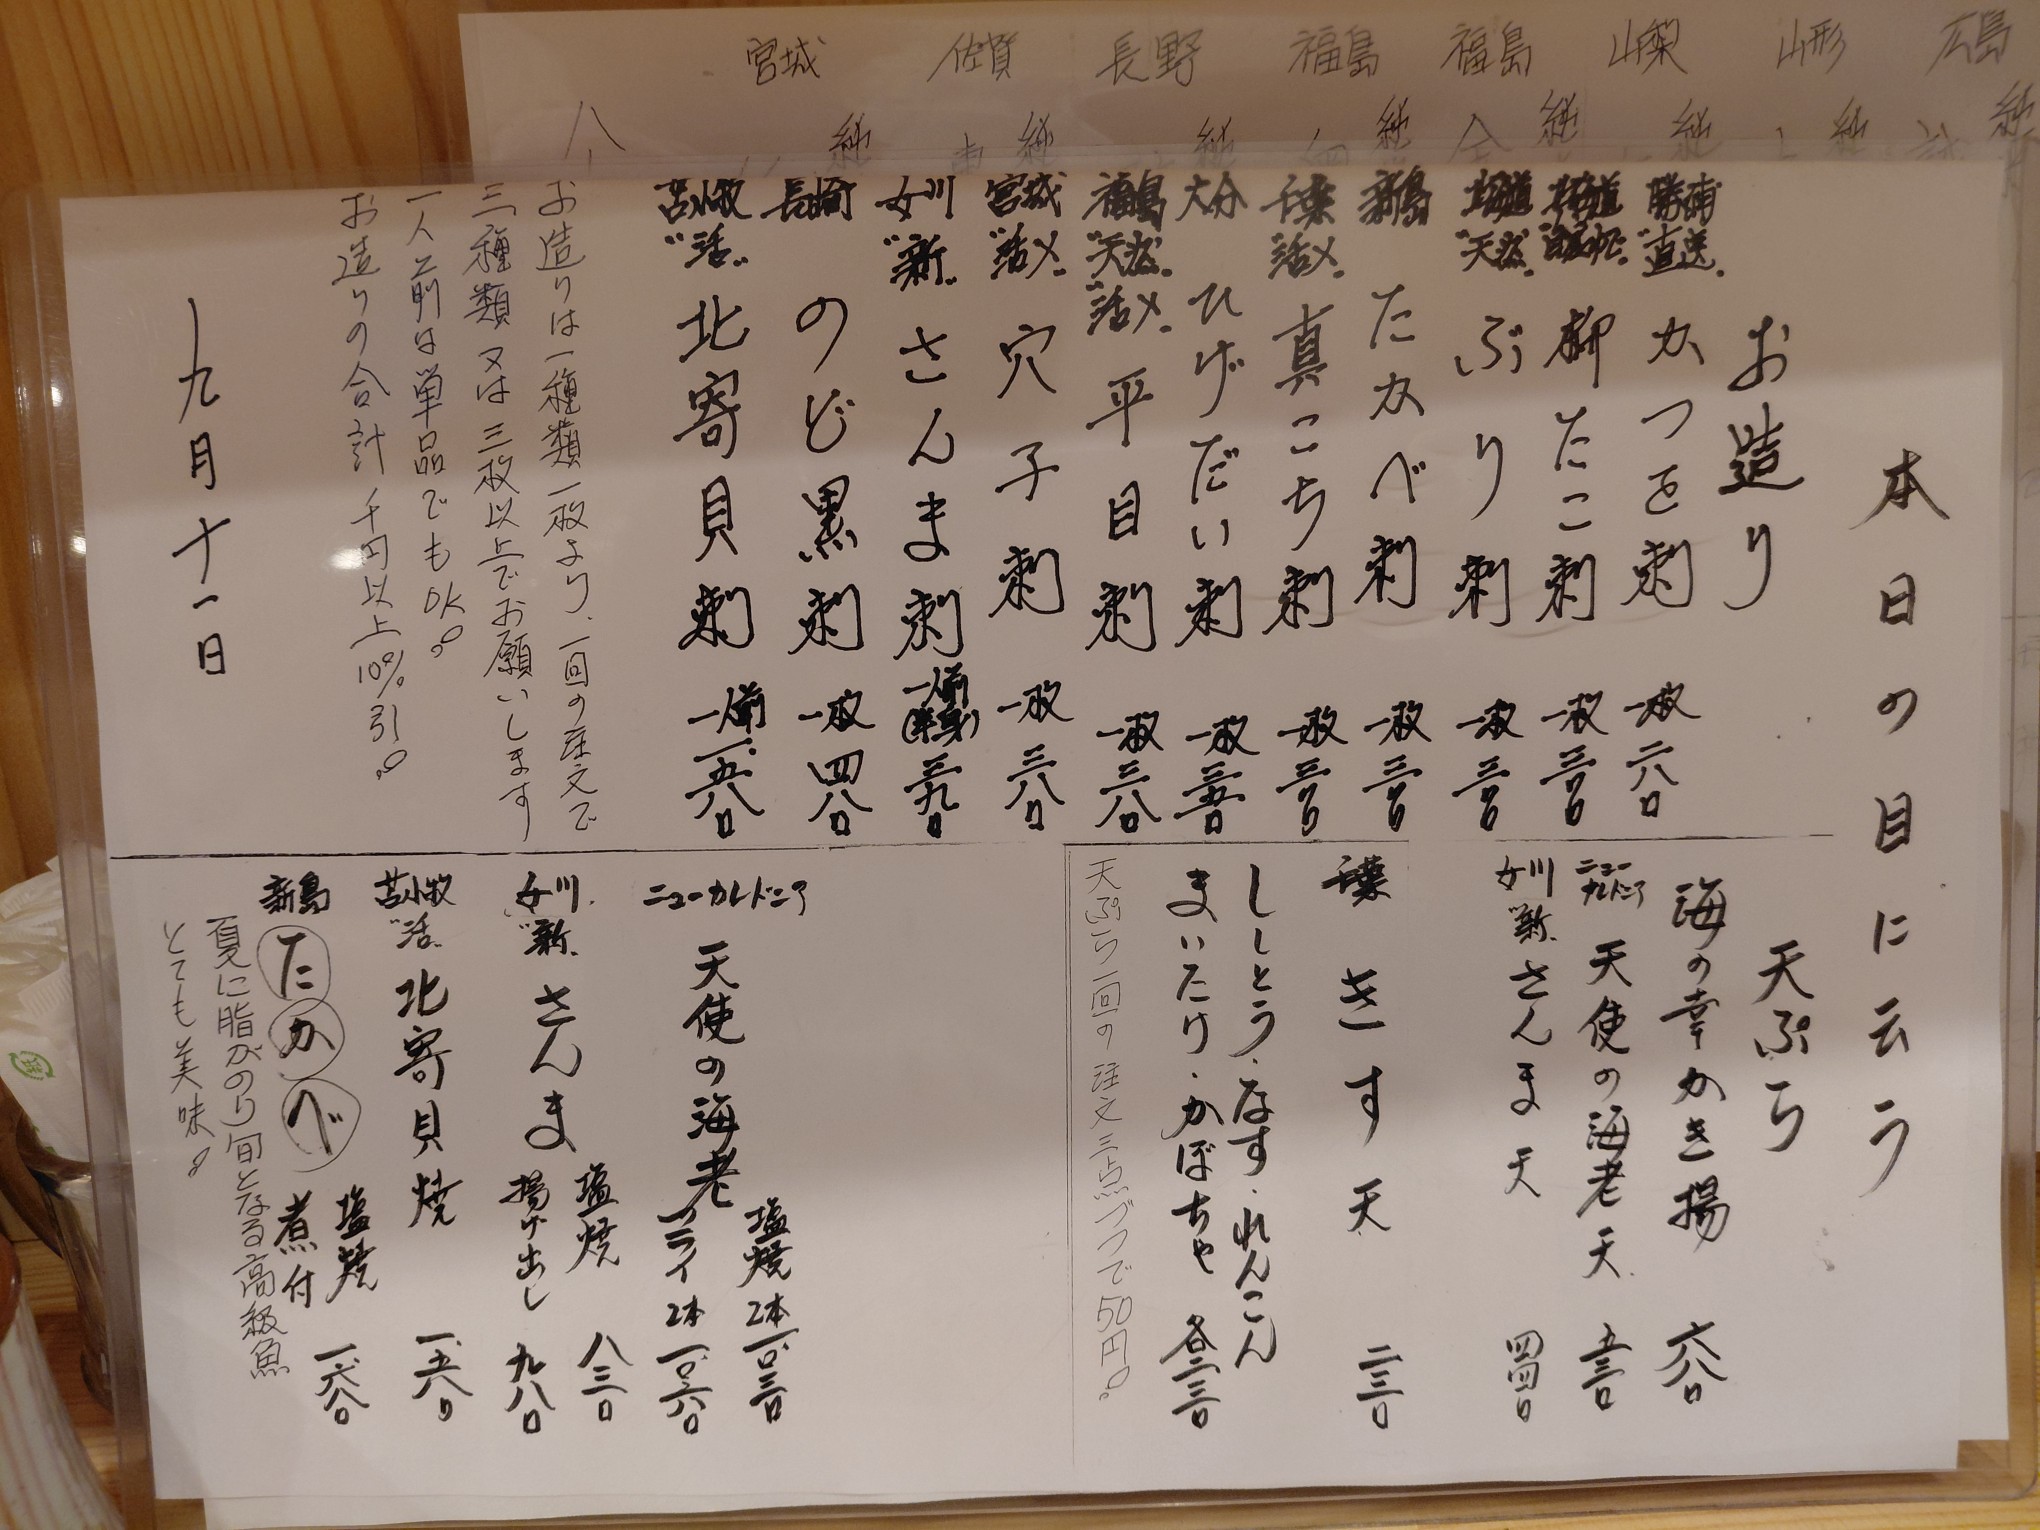 本日の目に云う
お造り
勝浦"直送"かつを刺 一枚 二八〇
北海道 柳たこ刺 一枚 三三〇
北海道"天然"ぶり刺 一枚
新島 たかべ刺 一枚
千葉"活〆"真こち刺 一枚
大分 ひげだい刺 一枚 三五〇
福島"天然""活〆"平目刺 一枚 三八〇
宮城"活〆"穴子刺 一枚 三八〇
女川"新"さんま刺 一人前(半身) 三九〇
長崎 のど黒刺 一枚 四八〇
苫小牧"活"北寄貝刺 一人前 一、五八〇
お造りは一種類一枚より、一回の注文で
三種類又は三枚以上でお願いします
一人前は単品でもOK。
お造りの合計千円以上10%引。
九月十一日
天ぷら
海の幸かき揚 六八〇
ニューカレドニア 天使の海老天 五三〇
女川"新"さんま天 四四〇
千葉 きす天 二三〇
ししとう・なす・れんこん
まいたけ・かぼちゃ 各二三〇
天ぷら一回の注文三点づつで50円引。
ニューカレドニア 天使の海老 塩焼 2本 一、〇三〇
フライ 2本 一、〇六〇
女川"新"さんま 塩焼 八三〇
揚げ出し 九八〇
苫小牧"活"北寄貝焼 一、五八〇
新島 たかべ 塩焼
煮付 一、六八〇
夏に脂がのり旬となる高級魚
とても美味。
広島
山形
山梨
福島
福島
長野
佐賀
宮城